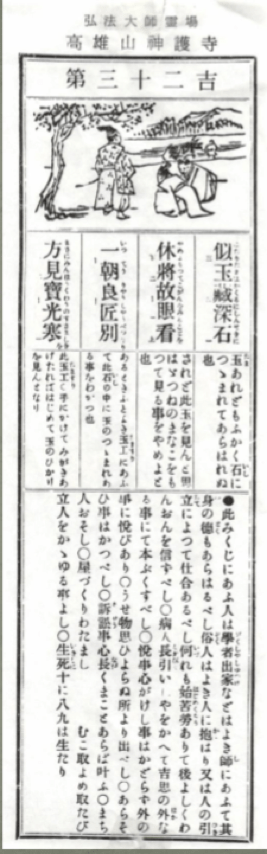 弘法大師霊場
高雄山神護寺
第三十二吉
似玉藏深石
休將故眼看
一朝良匠別
方見寶光寒
玉あれどもふかく石に
つゝまれてあらはれぬ
也
されど此玉を見んと思
はゞつねのまなこをも
つて見る事をやめよと
也
あるときふとよき玉工にあふ
て此石の中に玉のつゝまれあ
る事をわかつ也
此玉工く手にかけてみがきあ
げたればはじめて玉のひかり
を見んとなり
●此みくじにあふ人は學者出家などはよき師にあふて其
身の德もあらはるべし俗人はよき人に抱はり又は人の引
立によつて仕合あるべし何れも始苦勞ありて後よしくわ
んおんを信ずべし〇病人長引いしやをかへて吉思の外な
る事にて本ぶくすべし〇悦事心がけし事はかどらず外の
事に悅びあり〇うせ物思ひよらぬ所より出べし〇あらそ
ひ事はかつべし〇訴訟事心長くまことあらば叶ふ〇まち
人おそし〇屋づくりわたまし むこ取よめ取たび
立人をかゝゆる事よし〇生死十に八九は生たり